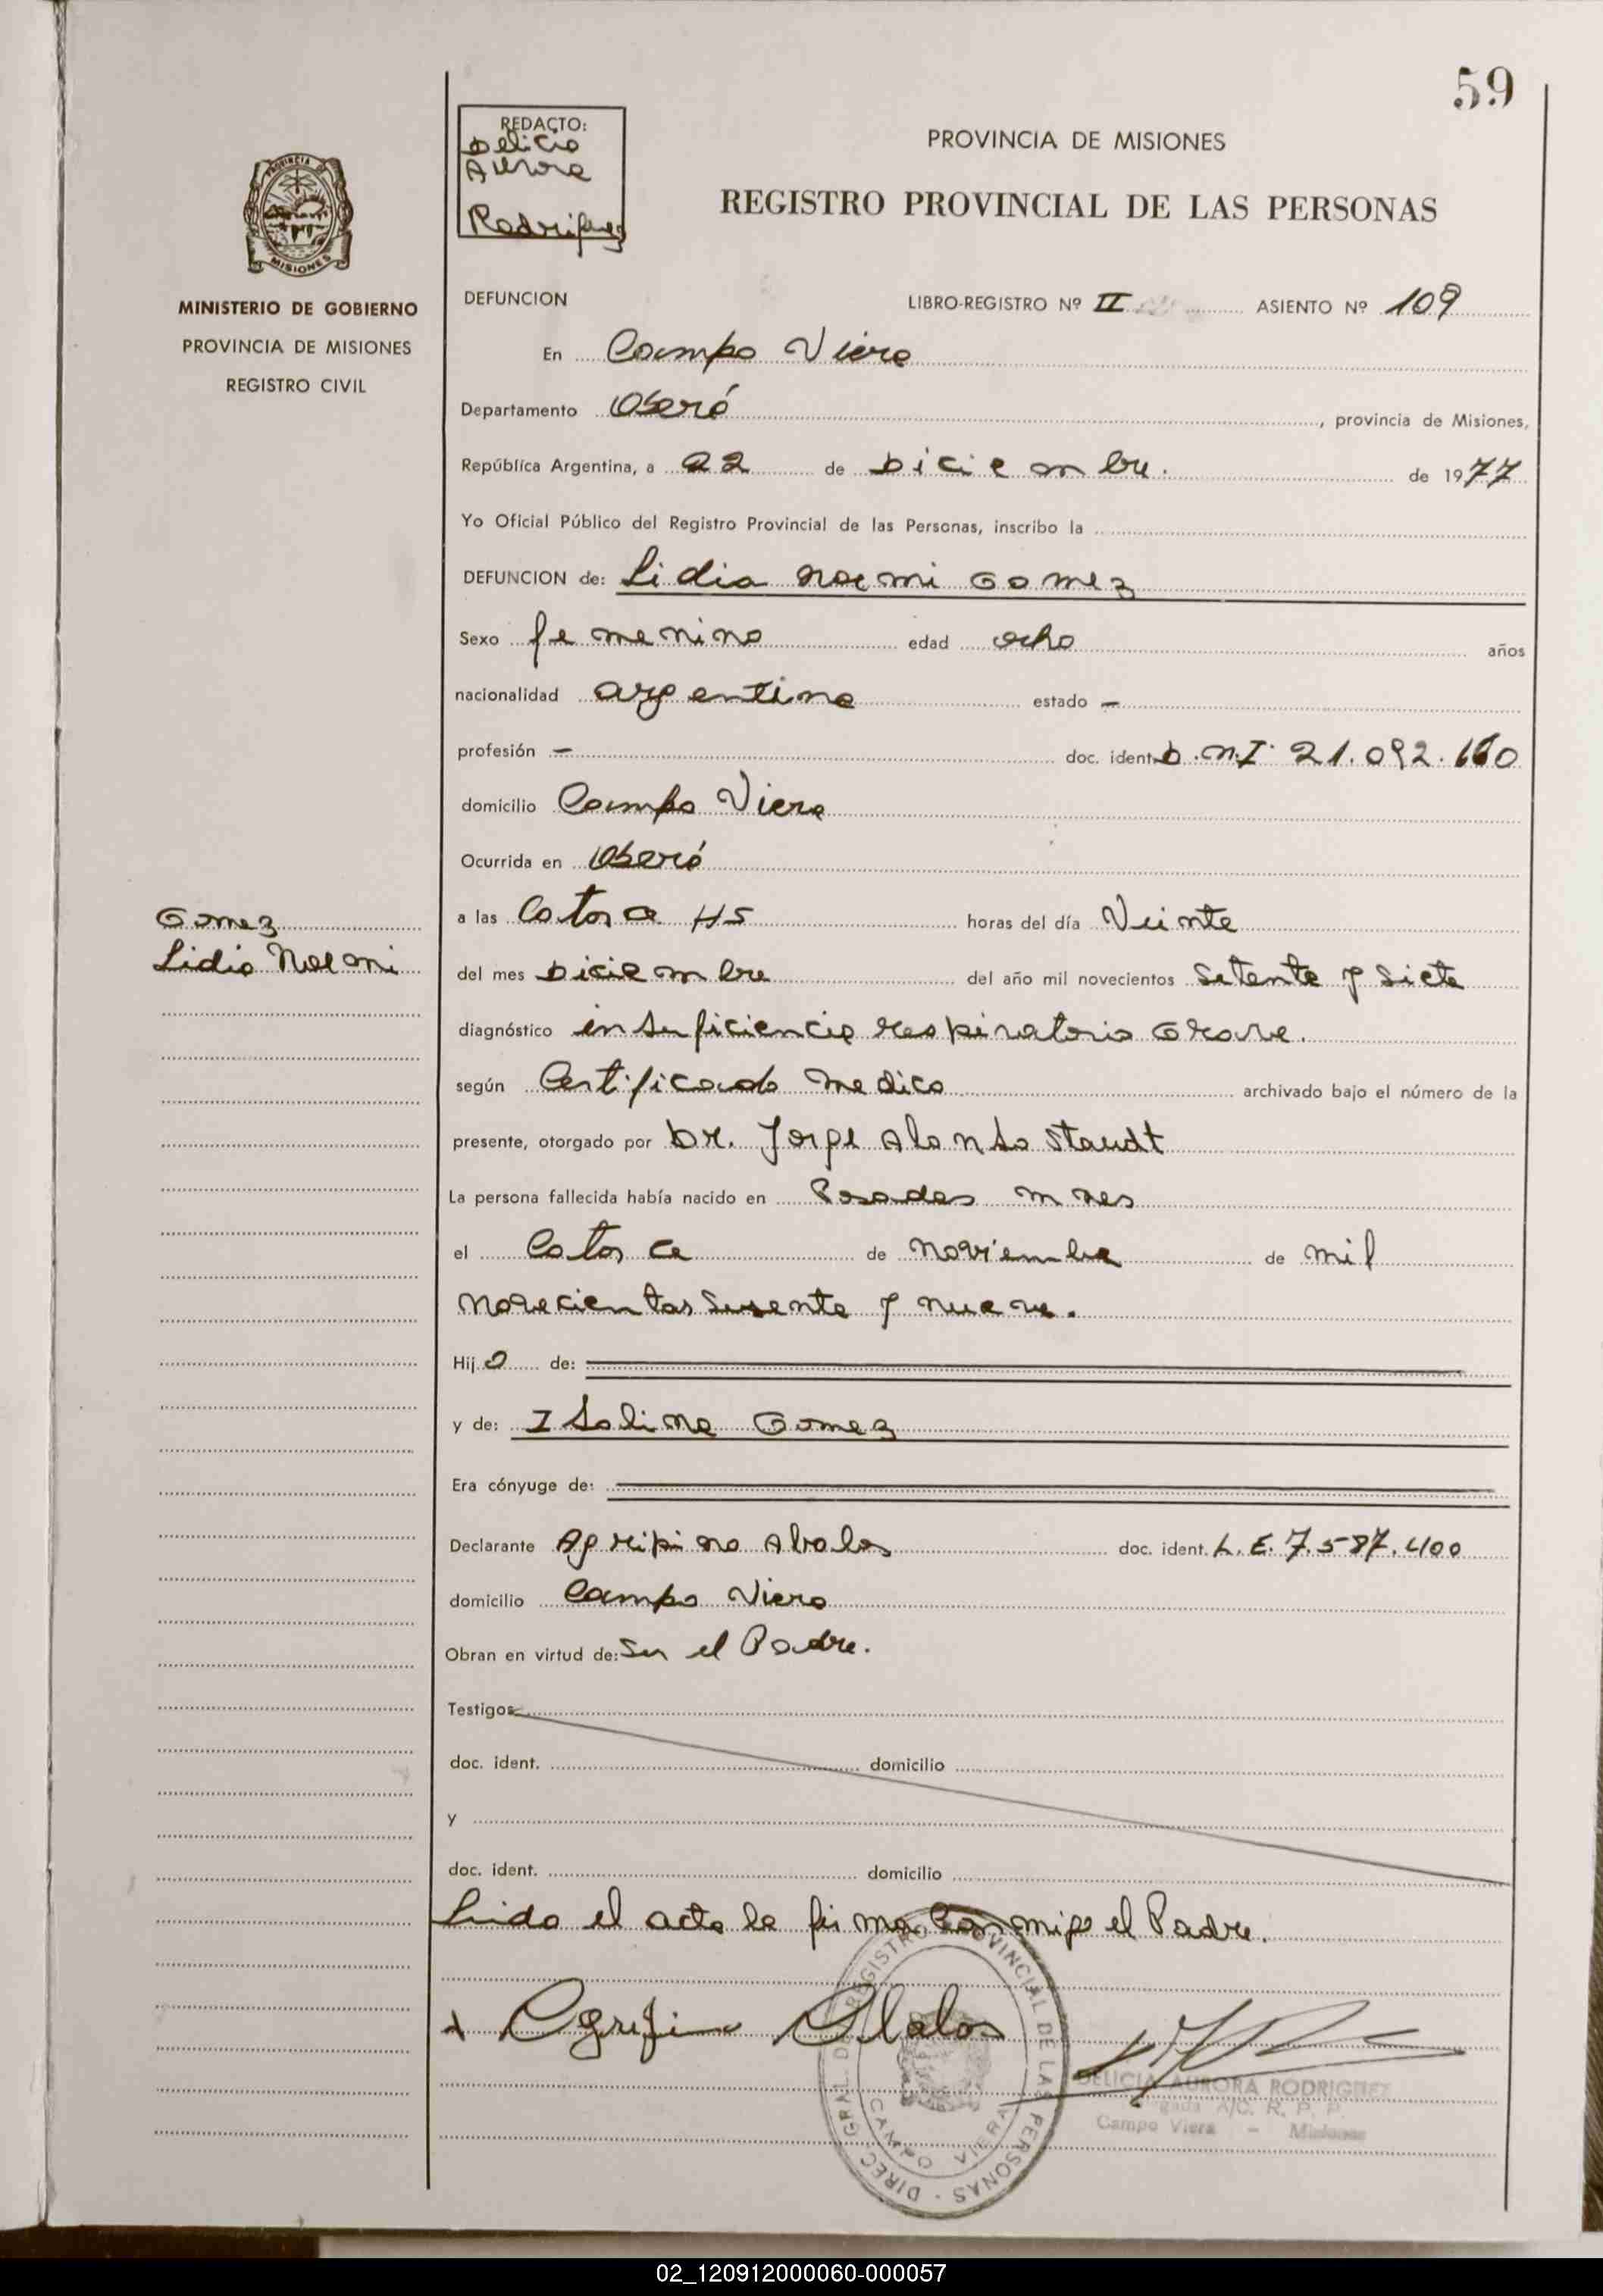 59
REDACTO:
Delicia
Aurora
Rodriguez
PROVINCIA DE MISIONES
REGISTRO PROVINCIAL DE LAS PERSONAS
PROVINCIA DE
MISIONES
MINISTERIO DE GOBIERNO
PROVINCIA DE MISIONES
REGISTRO CIVIL
DEFUNCION
LIBRO-REGISTRO Nº II ASIENTO Nº 109
En Campo Viera
Departamento Oberá, provincia de Misiones,
República Argentina, a 22 de Diciembre. de 1977
Yo Oficial Público del Registro Provincial de las Personas, inscribo la
DEFUNCION de: Lidia Noemi Gomez
Sexo femenino edad ocho años
nacionalidad argentina estado —
profesión — doc. ident. D.N.I. 21.092.160
domicilio Campo Viera
Ocurrida en Oberá
Gomez
Lidia Noemi
a las Catorce HS horas del día Veinte
del mes Diciembre del año mil novecientos Setenta y Siete
diagnóstico insuficiencia respiratoria Grave.
según Certificado medico archivado bajo el número de la
presente, otorgado por Dr. Jorge Alonso Staudt
La persona fallecida había nacido en Posadas Mnes
el Catorce de Noviembre de mil
Novecientos Sesenta y nueve.
Hij a de:
y de: Isolina Gomez
Era cónyuge de:
Declarante Agripino Abalos doc. ident. L.E. 7.587.400
domicilio Campo Viera
Obran en virtud de: Ser el Padre.
Testigos
doc. ident. domicilio
y
doc. ident. domicilio
Leida el acta la firma Conmigo el Padre.
Agripino Abalos
DIREC. GRAL. DE REGISTRO PROVINCIAL DE LAS PERSONAS -
CAMPO VIERA
DELICIA AURORA RODRIGUEZ
A/C. R. P. P.
Campo Viera - Misiones
02_120912000060-000057